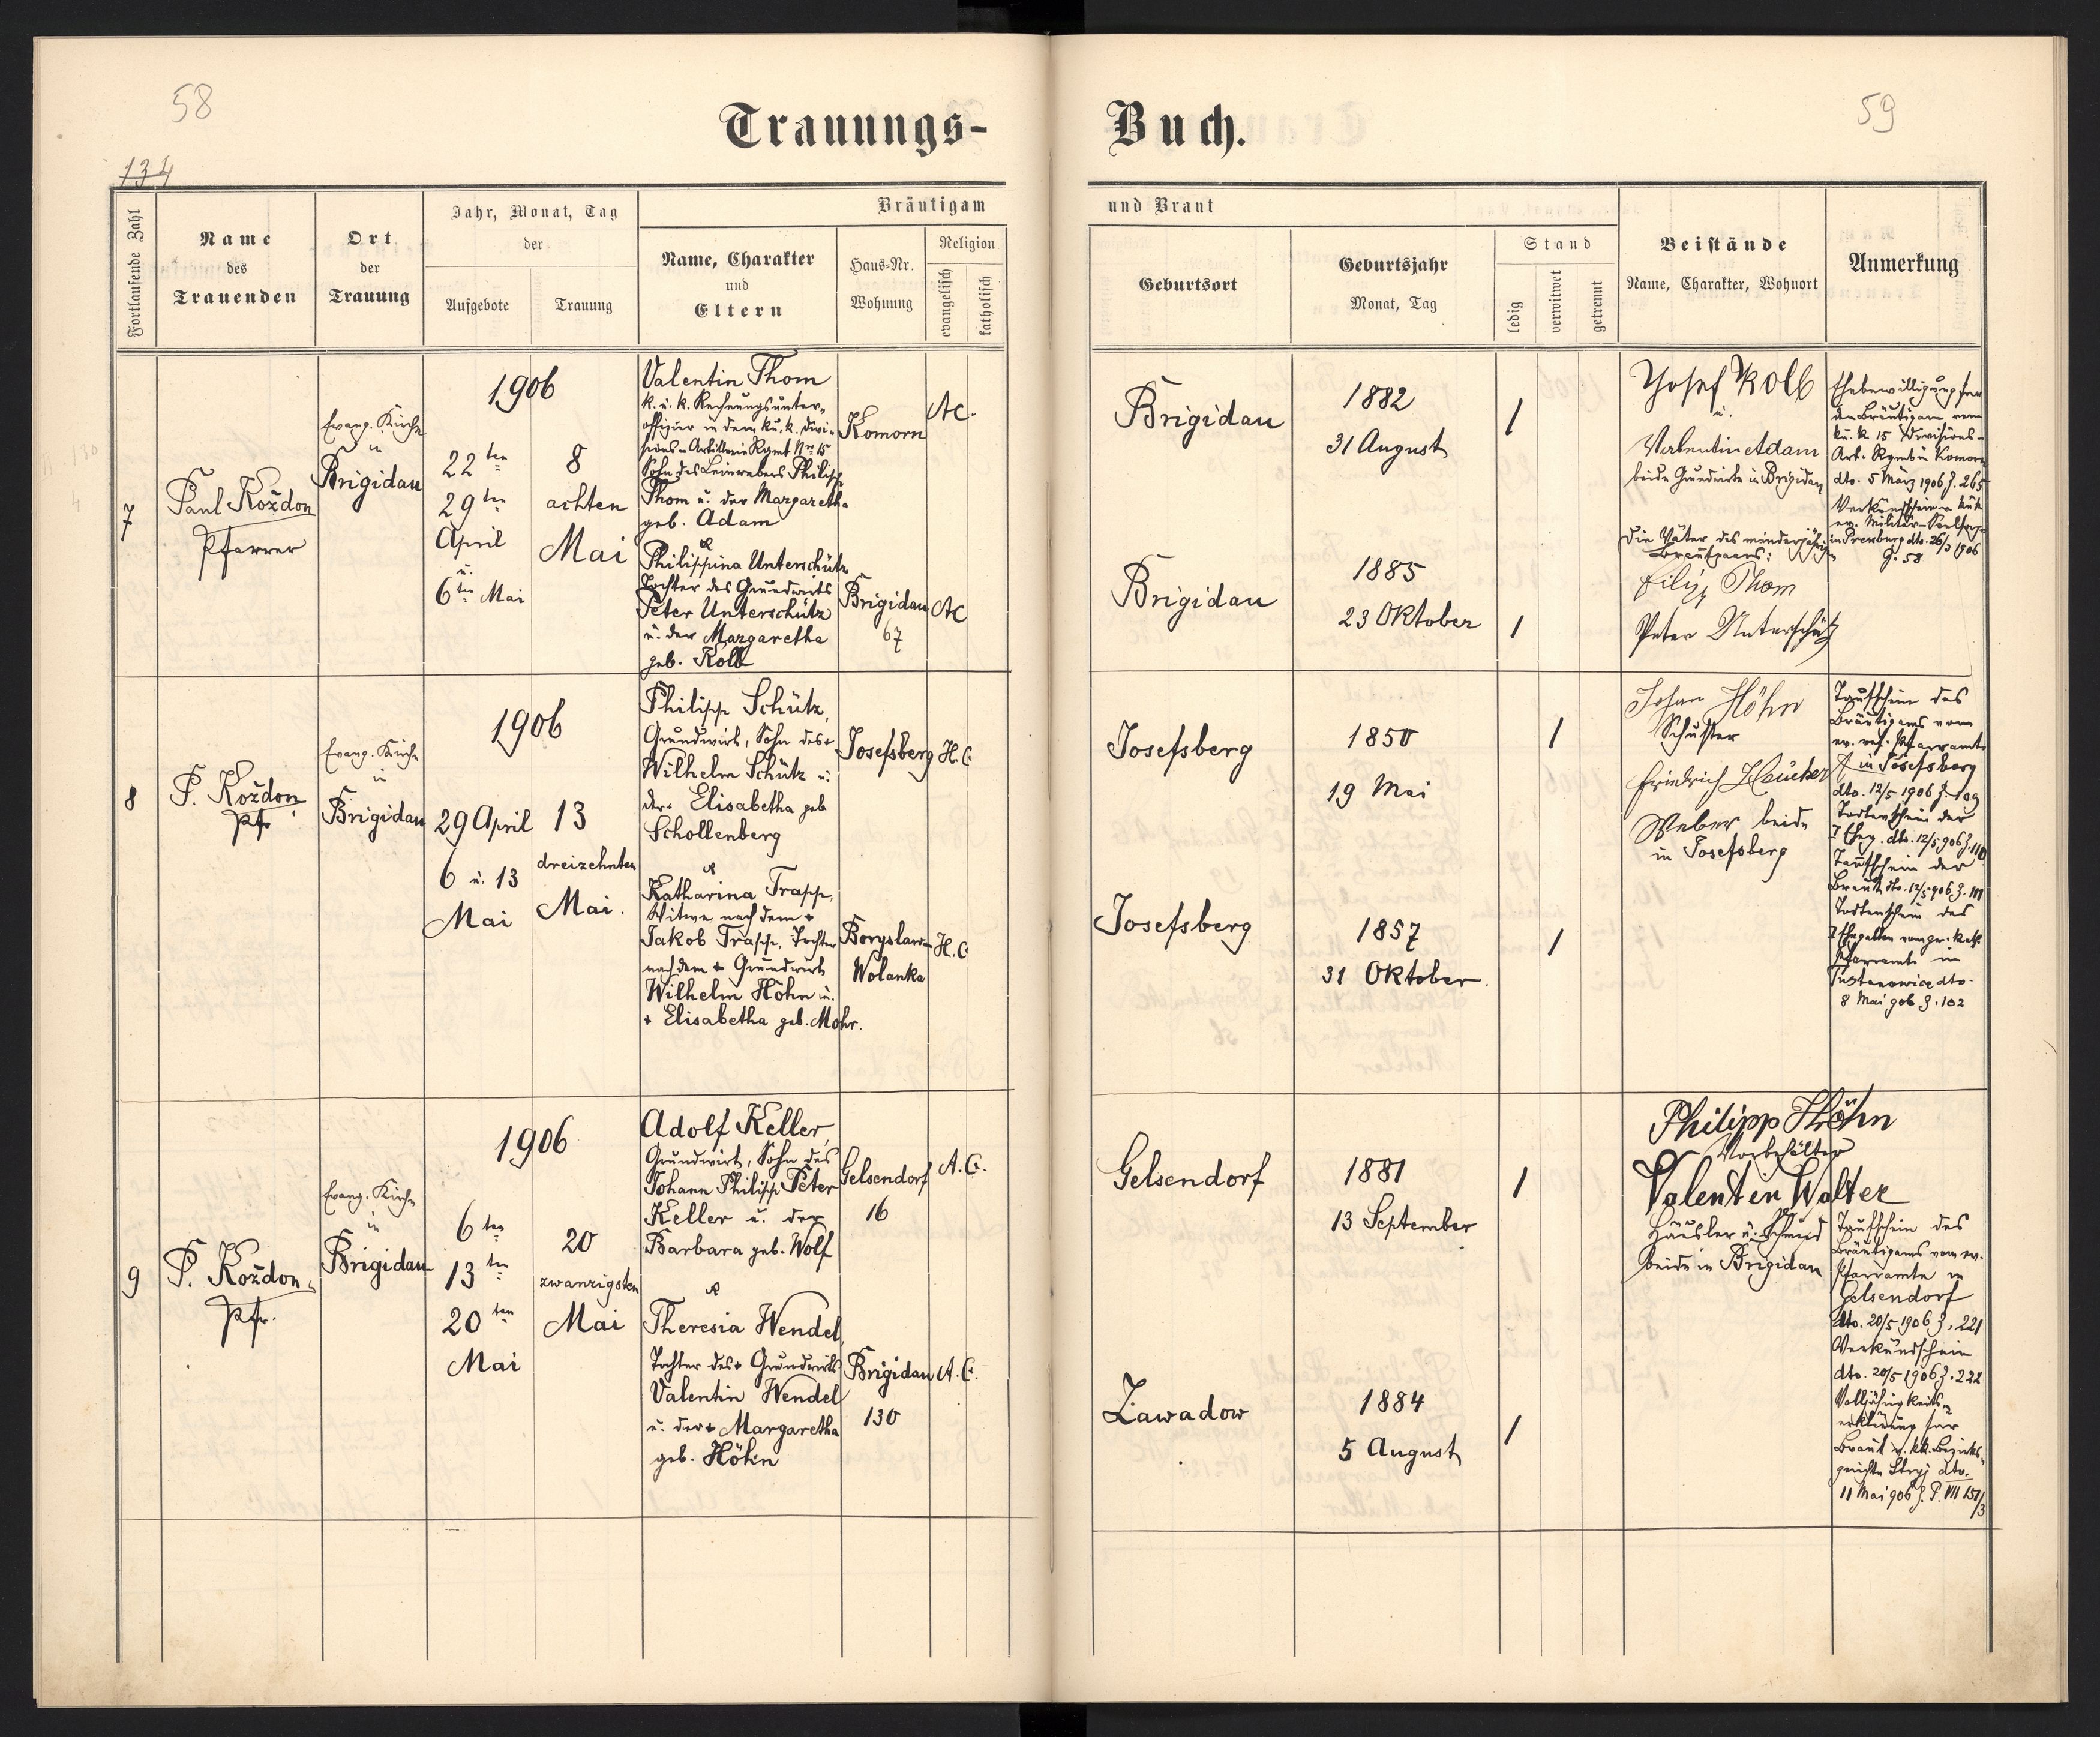 58
59
134
Trauungs-
Buch.
Fortlaufende Zahl
Name
des
Trauenden
Ort
der
Trauung
Jahr, Monat, Tag
der
Aufgebote
Trauung
Bräutigam
Name, Charakter
und
Eltern
Haus-Nr.
Wohnung
Religion
evangelisch
katholisch
und Braut
Geburtsort
Geburtsjahr
Monat, Tag
Stand
ledig
verwitwet
getrennt
Beistände
Name, Charakter, Wohnort
Anmerkung
7
Paul Kożdon
Pfarrer
Evang. Kirche
in
Brigidau
1906
22 ten
29 ten
April
u.
6 ten Mai
8
achten
Mai
Valentin Thom
k. u. k. Rechnungsunter-
offizier in dem k. u. k. Divi-
sions-Artillerie Rgmt Nro 15
Sohn des Leinwebers Philipp
Thom u. der Margaretha
geb. Adam
&
Philippina Unterschütz
Tochter des Grundwirts
Peter Unterschütz
u. der Margaretha
geb. Kolb
Komorn
AC.
Brigidau
67
AC
Brigidau
1882
31 August
/
Brigidau
1885
23 Oktober
/
Josef Kolb
u.
Valentin Adam
beide Grundwirte in Brigidau
Die Väter des minderjährigen
Brautpaars:
Filip Thom
Peter Unterschütz
Ehebewilligung für
den Bräutigam vom
k. u. k. 15 Divisions-
Art. Rgmt in Komorn
dto. 5 März 1906 Z. 265
Verkündschein v. k. u. k.
ev. Militär-Seelsorge
in Pressburg dto. 26/3 1906
Z. 58
8
P. Kożdon
Pfr
Evang. Kirche
in
Brigidau
1906
29 April
6 u. 13
Mai
13
dreizehnten
Mai.
Philipp Schütz,
Grundwirt, Sohn des +
Wilhelm Schütz u.
der + Elisabetha geb
Schollenberg
&
Katharina Trapp,
Witwe nach dem +
Jakob Trapp, Tochter
nach dem + Grundwirt
Wilhelm Höhn u.
+ Elisabetha geb. Mohr.
Josefsberg
H. C
Boryslaw-
Wolanka
H. C
Josefsberg
1850
19 Mai
/
Josefsberg
1857
31 Oktober.
/
Johan Höhn
Schuster
Friedrich Haucker
Weber beide
in Josefsberg
Taufschein des
Bräutigams vom
ev. ref. Pfarramte
in Josefsberg
dto. 12/5 1906 Z. 109
Todtenschein der
I Eheg. dto. 12/5 906 Z. 110
Taufschein der
Braut dto. 12/5 906 Z. 111
Todtenschein des
I Ehegatten vom gr. kat.
Pfarramte in
Tustanowice dto.
8 Mai 906 Z. 102
9
P. Kożdon
Pfr.
Evang. Kirche
in
Brigidau
1906
6 ten
13 ten
20 ten
Mai
20
zwanzigsten
Mai
Adolf Keller,
Grundwirt, Sohn des
Johann Philipp Peter
Keller u. der
Barbara geb. Wolf
&
Theresia Wendel,
Tochter des + Grundwirts
Valentin Wendel
u. der + Margaretha
geb. Höhn
Gelsendorf
16
A. C.
Brigidau
130
A. C.
Gelsendorf
1881
13 September
/
Zawadow
1884
5 August
/
Philipp Höhn
Vorbehälter
Valentin Walter
Häusler u. Schmid
beide in Brigidau
Taufschein des
Bräutigams vom ev.
Pfarramte in
Gelsendorf
dto. 20/5 1906 Z. 221
Verkündschein
dto. 20/5 1906 Z. 222
Volljährigkeits-
erklärung für
Braut v. kk. Bezirks-
gerichte Stryj dto.
11 Mai 906 Z. P. VII 157/3